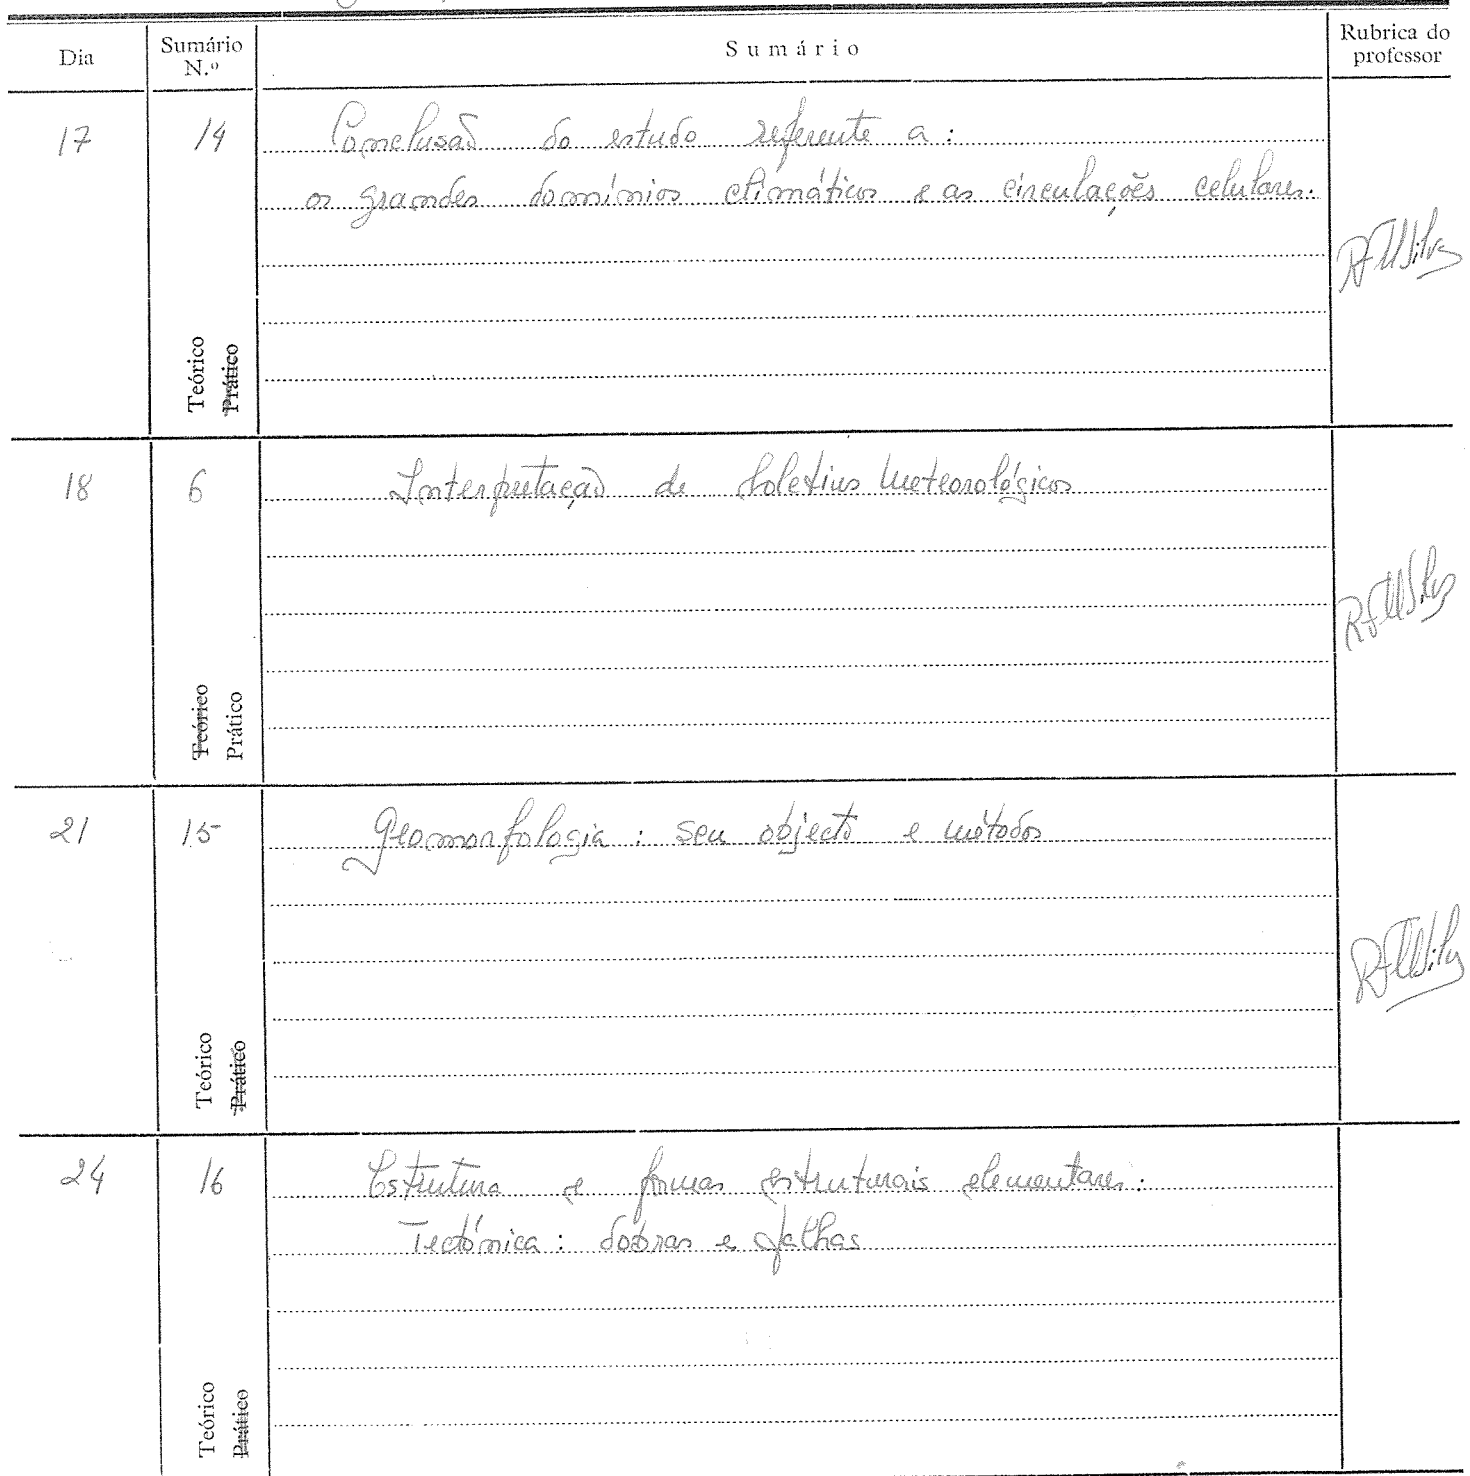 Dia Sumário N.º Sumário Rubrica do professor
17 14 Conclusão do estudo referente a:
os grandes domínios climáticos e as circulações celulares.
Teórico
Prático
18 6 Interpretação de boletins meteorológicos
Teórico
Prático
21 15 Geomorfologia: seu objecto e métodos
Teórico
Prático
24 16 Estrutura e formas estruturais elementares:
Tectónica: dobras e falhas
Teórico
Prático